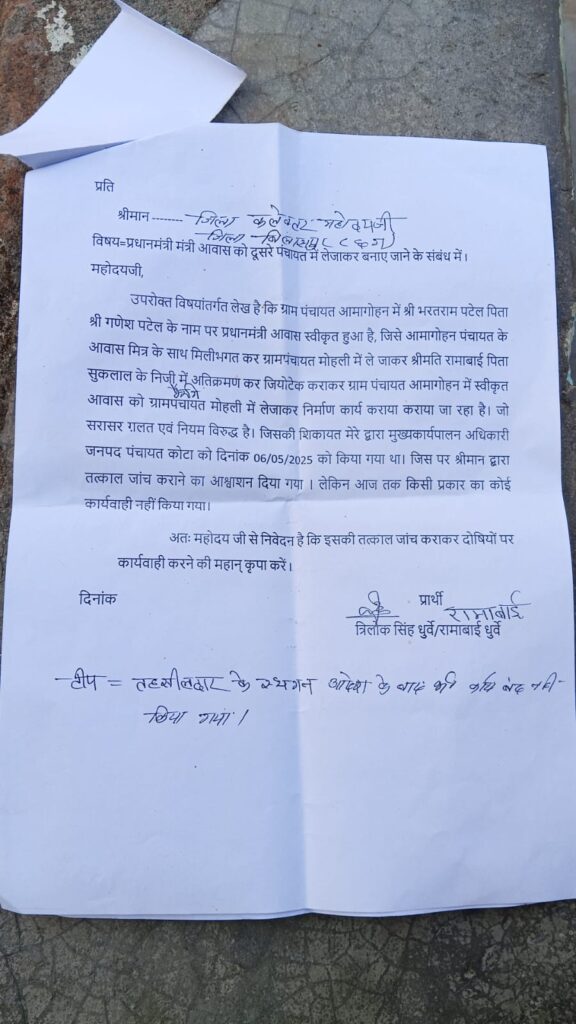 प्रति
श्रीमान -------- जिला कलेक्टर महोदयजी
जिला बिलासपुर (छ.ग)
विषय=प्रधानमंत्री मंत्री आवास को दूसरे पंचायत में लेजाकर बनाए जाने के संबंध में।
महोदयजी,
उपरोक्त विषयांतर्गत लेख है कि ग्राम पंचायत आमागोहन में श्री भरतराम पटेल पिता
श्री गणेश पटेल के नाम पर प्रधानमंत्री आवास स्वीकृत हुआ है, जिसे आमागोहन पंचायत के
आवास मित्र के साथ मिलीभगत कर ग्रामपंचायत मोहली में ले जाकर श्रीमति रामाबाई पिता
सुकलाल के निजी में अतिक्रमण कर जियोटेक कराकर ग्राम पंचायत आमागोहन में स्वीकृत
आवास को ग्रामपंचायत मोहली में लेजाकर निर्माण कार्य कराया कराया जा रहा है। जो
सरासर ग़लत एवं नियम विरुद्ध है। जिसकी शिकायत मेरे द्वारा मुख्यकार्यपालन अधिकारी
जनपद पंचायत कोटा को दिनांक 06/05/2025 को किया गया था। जिस पर श्रीमान द्वारा
तत्काल जांच कराने का आश्वाशन दिया गया । लेकिन आज तक किसी प्रकार का कोई
कार्यवाही नहीं किया गया।
अतः महोदय जी से निवेदन है कि इसकी तत्काल जांच कराकर दोषियों पर
कार्यवाही करने की महान् कृपा करें।
दिनांक
प्रार्थी
रामाबाई
त्रिलोक सिंह धुर्वे/रामाबाई धुर्वे
टीप = तहसीलदार के स्थगन आदेश के बाद भी कार्य बंद नही
किया गया।